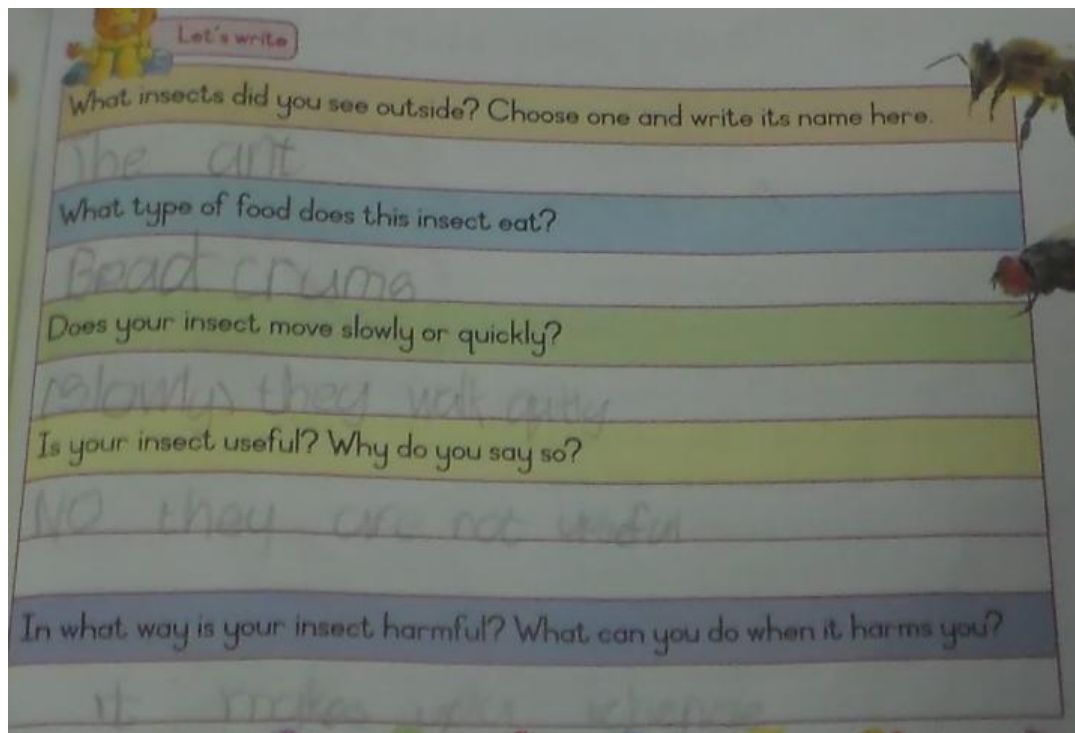 Let's write
What insects did you see outside? Choose one and write its name here.
The ant
What type of food does this insect eat?
Bead crums
Does your insect move slowly or quickly?
Slowly they walk
Is your insect useful? Why do you say so?
NO they are not useful
In what way is your insect harmful? What can you do when it harms you?
it makes you